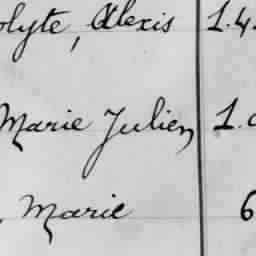 olyte, Alexis 1.4
Marie Julien, 1.
, Marie 6